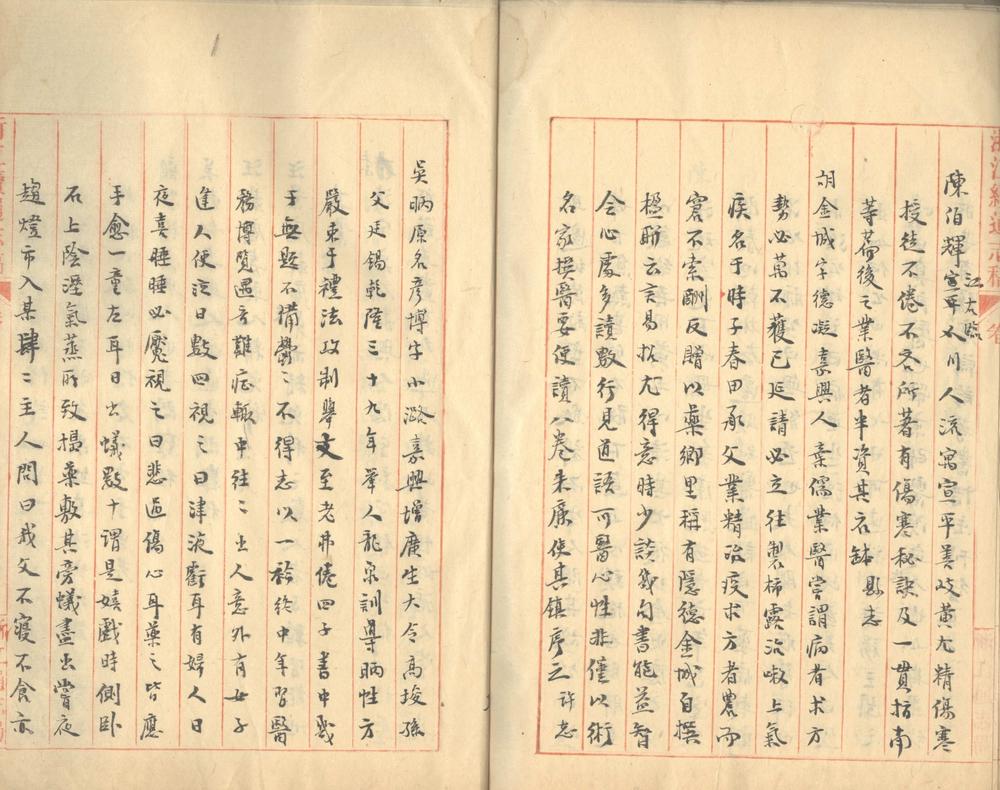 浙江續通志稿 卷
陳伯輝宣平 人流寓宣平善岐黃尤精傷寒
江太監
授徒不倦不吝所著有傷寒秘訣及一貫指南
等篇後之業醫者半資其衣缽 縣志
胡金城字德凝嘉興人棄儒業醫嘗謂病者求方
勢必萬不獲已延請必立往製柿露治嗽上氣
疾名于時子春田承父業精治疫求方者農而
窶不索酬反贈以藥鄉里稱有隱德金城自撰
楹聯云言易招尤得意時少談幾句書能益智
會心處多讀數行見道語可醫心性非僅以術
名家撰醫要便讀八卷朱廉使其鎮序之 許志
吳昞原名彥博字小潞嘉興增廣生大令高埈孫
父廷錫乾隆三十九年舉人龍泉訓導昞性方
嚴束于禮法攻制舉文至老弗倦四子書中幾
于無題不備 不得志以一衿終中年習醫
務博覽遇奇難症輒中往〻出人意外有女子
進人便泣日數四視之曰津液 耳有婦人日
夜喜睡睡必魘視之曰悲過傷心耳藥之皆應
手愈一童左耳日出蟻數十謂是嬉戲時側卧
石上陰溼氣蒸所致搗藥敷其旁蟻盡出嘗夜
趨燈市入某肆〻主人問曰我父不寢不食亦